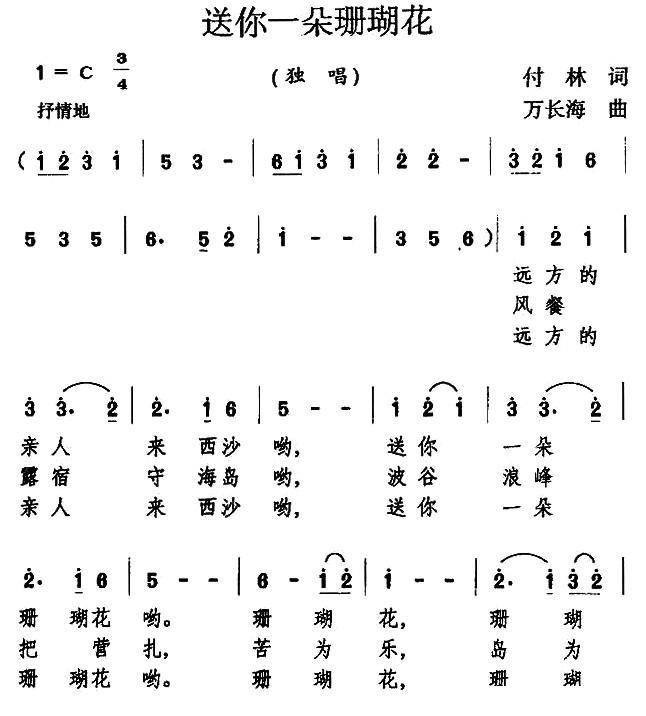 送你一朵珊瑚花
1 = C 3/4
(独 唱)
付 林 词
抒情地
万长海 曲
( 1̇ 2̇ 3̇ 1̇ | 5 3 - | 6 1̇ 3̇ 1̇ | 2̇ 2̇ - | 3̇ 2̇ 1̇ 6 |
5 3 5 | 6. 5 2̇ | 1̇ - - | 3 5 6 ) | 1̇ 2̇ 1̇
远 方 的
风 餐
远 方 的
3̇ 3̇. 2̇ | 2̇. 1̇ 6 | 5 - - | 1̇ 2̇ 1̇ | 3̇ 3̇. 2̇ |
亲 人 来 西 沙 哟, 送 你 一 朵
露 宿 守 海 岛 哟, 波 谷 浪 峰
亲 人 来 西 沙 哟, 送 你 一 朵
2̇. 1̇ 6 | 5 - - | 6 - 1̇ 2̇ | 1̇ - - | 2̇. 1̇ 3̇ 2̇ |
珊 瑚 花 哟。 珊 瑚 花, 珊 瑚
把 营 扎, 苦 为 乐, 岛 为
珊 瑚 花 哟。 珊 瑚 花, 珊 瑚